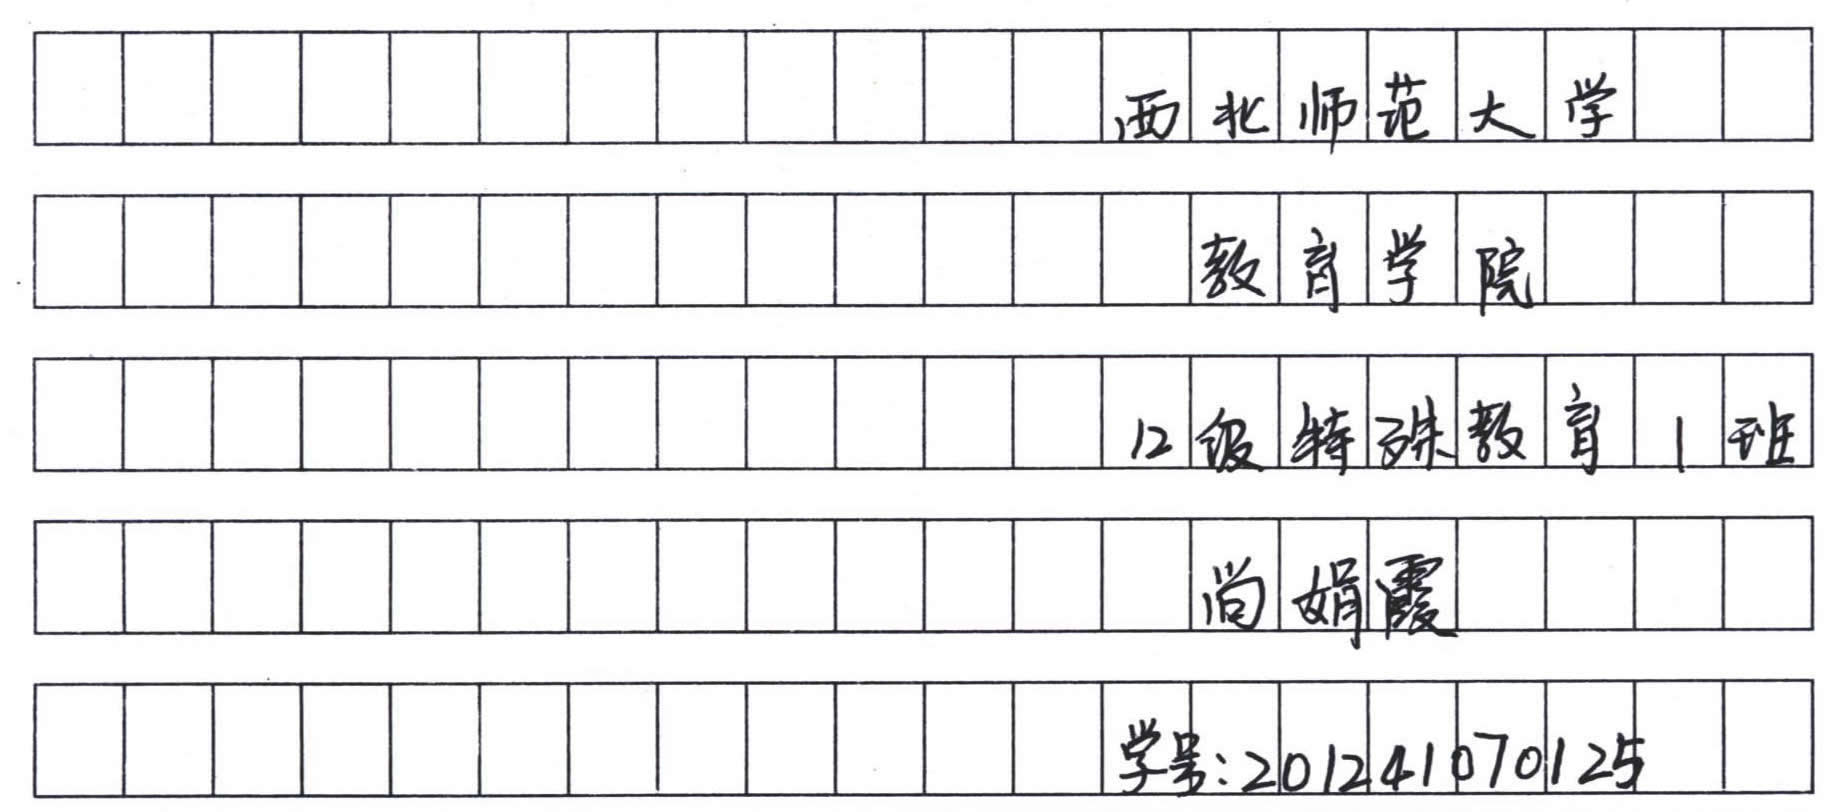 西北师范大学
教育学院
12级特殊教育1班
尚娟霞
学号:201241070125